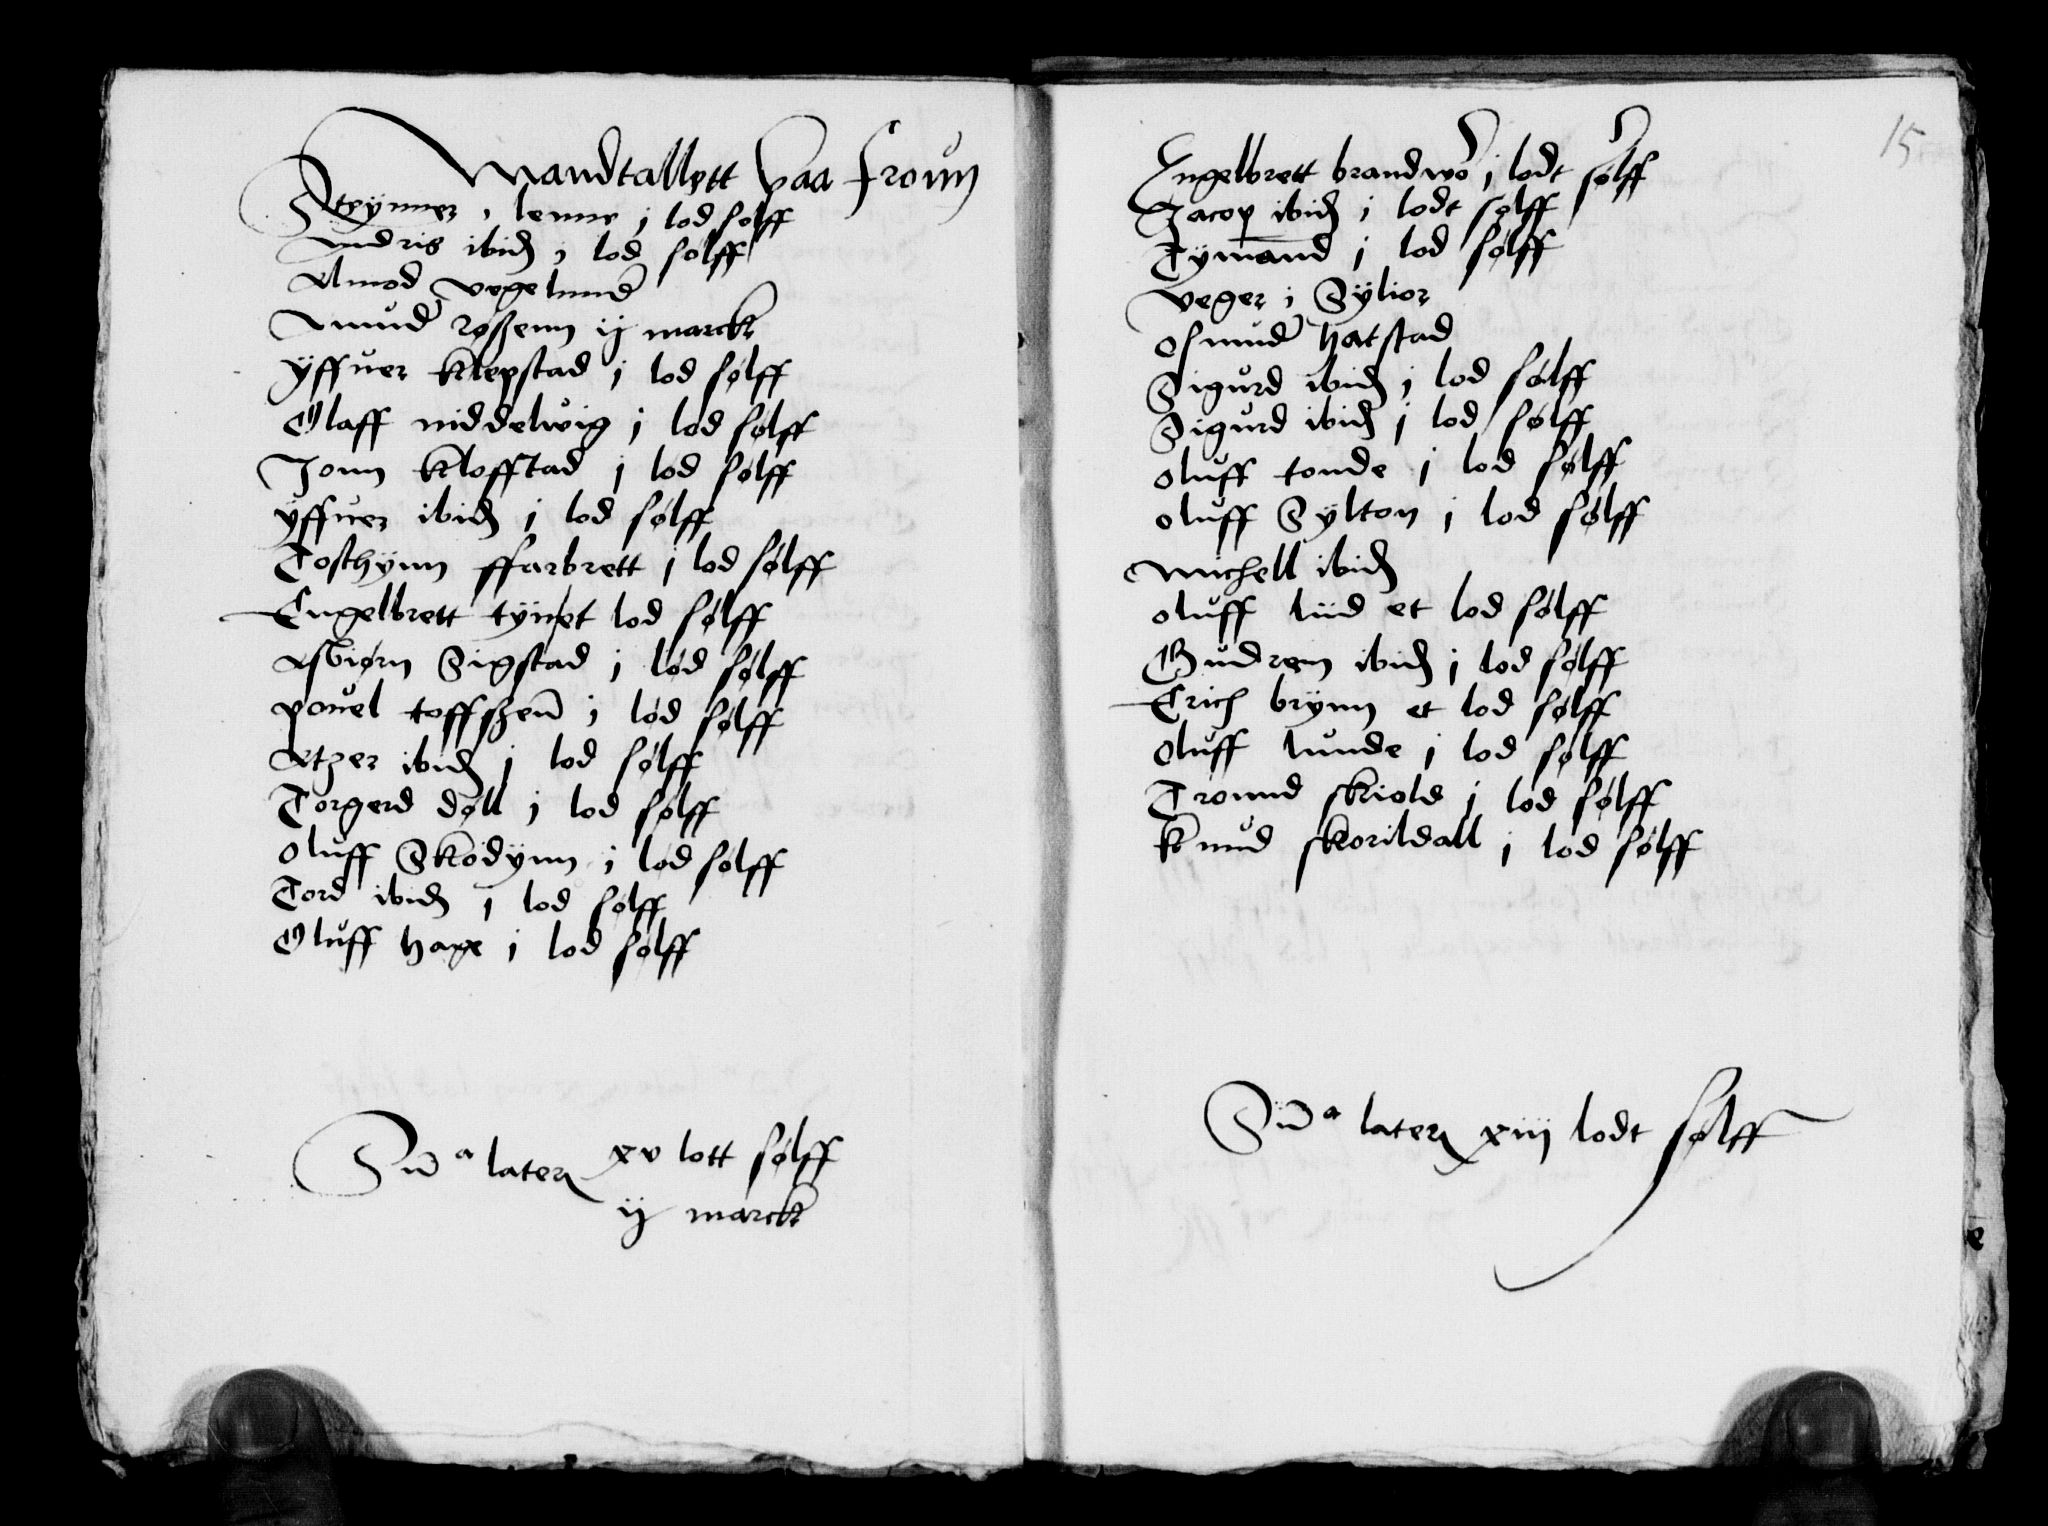 Mandtallett paa froun
Steynner i lenne j lod sølff
Andris ibid j lod sølff
Amod vegelund
Amund roßenn ij marck
Yffuer klepstad j lod sølff
Olaff niddelwig j lod sølff
Jonn kloffstad j lod sølff
yffuer ibid j lod sølff
Tosthynn ffarbrett j lod sølff
Engelbrett tynet lod sølff
Asbiørn Sigstad j lod sølff
pouel toffszenn j lod sølff
Atzer ibid j lod sølff
Torgerd døll j lod sølff
Oluff Skodynn j lod sølff
Tord ibid j lod sølff
Oluff hage j lod sølff
Sum a later xv lott sølff
ij marck
15
Engelbrett brandwo j lodt sølff
Jacop ibid j lodt sølff
Tymand j lod sølff
veger i Sylior
Osmund hatstad
Sigurd ibid j lod sølff
Sigurd ibid j lod sølff
oluff tonde j lod sølff
oluff Sylton j lod sølff
Michell ibid
oluff liid et lod sølff
Gudrem ibid j lod sølff
Erich brynn et lod sølff
Oluff lunde j lod sølff
Tround skiold j lod sølff
knud skorildall j lod sølff
Sum a later xiij lodt sølff